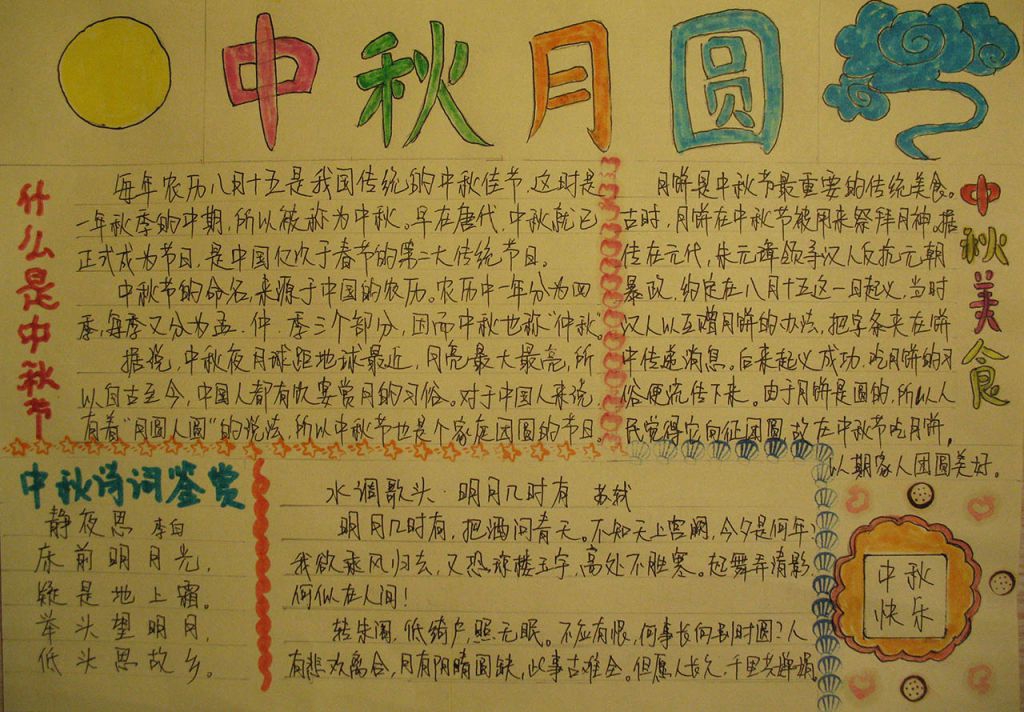 中秋月圆
什么是中秋节
每年农历八月十五是我国传统的中秋佳节,这时是
一年秋季的中期,所以被称为中秋。早在唐代,中秋就已
正式成为节日,是中国仅次于春节的第二大传统节日。
中秋节的命名,来源于中国的农历。农历中一年分为四
季,每季又分为孟.仲.季三个部分,因而中秋也称“仲秋”
据说,中秋夜月球距地球最近,月亮最大最亮,所
以自古至今,中国人都有饮宴赏月的习俗。对于中国人来说,
有着“月圆人圆”的说法,所以中秋节也是个家庭团圆的节日。
中秋美食
月饼是中秋节最重要的传统美食。
古时,月饼在中秋节被用来祭拜月神。据
传在元代,朱元璋领导汉人反抗元朝
暴政,约定在八月十五这一日起义,当时
汉人以互赠月饼的办法,把字条夹在饼
中传递消息。后来起义成功,吃月饼的习
俗便流传下来。由于月饼是圆的,所以人
民觉得它向征团圆,故在中秋节吃月饼,
以期家人团圆美好。
中秋诗词鉴赏
静夜思 李白
床前明月光,
疑是地上霜。
举头望明月,
低头思故乡。
水调歌头·明月几时有 苏轼
明月几时有,把酒问青天。不知天上宫阙,今夕是何年,
我欲乘风归去,又恐琼楼玉宇,高处不胜寒。起舞弄清影,
何似在人间!
转朱阁,低绮户,照无眠。不应有恨,何事长向别时圆?人
有悲欢离合,月有阴晴圆缺,此事古难全。但愿人长久,千里共婵娟。
中秋
快乐